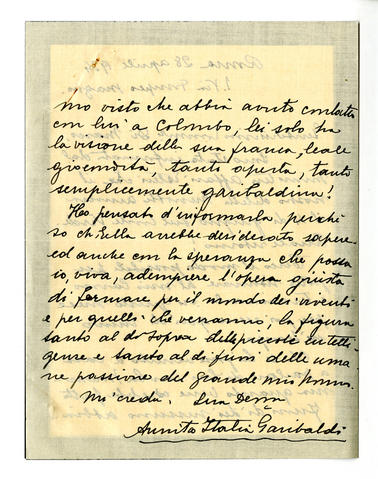 mo visto che abbia avuto contatto
con lui a Colombo, lei solo ha
la visione della sua franca, leale
giocondità, tanto aperta, tanto
semplicemente garibaldina!
Ho pensato d'informarla perchè
so ch'Ella avrebbe desiderato sapere
ed anche con la speranza che possa
io, viva, adempiere l'opera giusta
di fermare per il mondo dei viventi
e per quelli che verranno, la figura
tanto al di sopra delle piccole intelli
genze e tanto al di fuori delle uma
ne passione del grande mio
Mi creda. Sua Devma
Annita Italia Garibaldi